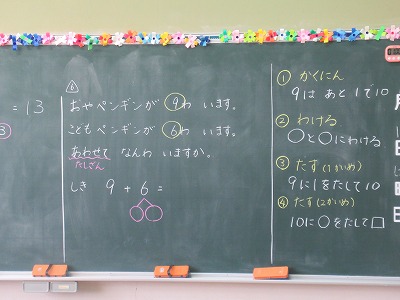 = 13
3
6
おやペンギンが 9わ います。
こどもペンギンが 6わ います。
あわせて なんわ いますか。
たしざん
しき 9 + 6 =
① かくにん
9は あと1で10
② わける
○と○にわける
③ たす(1かいめ)
9に1をたして10
④ たす(2かいめ)
10に○をたして□